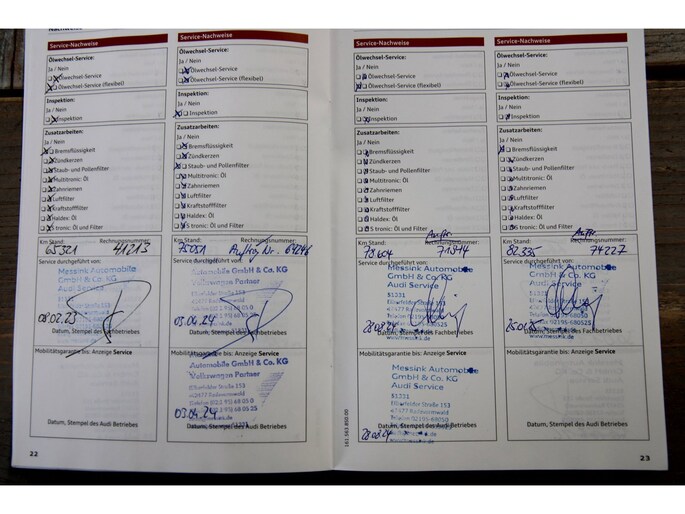 Service-Nachweise
Ölwechsel-Service:
Ja / Nein
Ölwechsel-Service
Ölwechsel-Service (flexibel)
Inspektion:
Ja / Nein
Inspektion
Zusatzarbeiten:
Ja / Nein
Bremsflüssigkeit
Zündkerzen
Staub- und Pollenfilter
Multitronic: Öl
Zahnriemen
Luftfilter
Kraftstofffilter
Haldex: Öl
S tronic: Öl und Filter
Km Stand: Rechnungsnummer:
65321 41213
Service durchgeführt von:
Messink Automobile
GmbH & Co. KG
Audi Service
08.02.23
Datum, Stempel des Fachbetriebes
Mobilitätsgarantie bis: Anzeige Service
Datum, Stempel des Audi Betriebes
22
Service-Nachweise
Ölwechsel-Service:
Ja / Nein
Ölwechsel-Service
Ölwechsel-Service (flexibel)
Inspektion:
Ja / Nein
Inspektion
Zusatzarbeiten:
Ja / Nein
Bremsflüssigkeit
Zündkerzen
Staub- und Pollenfilter
Multitronic: Öl
Zahnriemen
Luftfilter
Kraftstofffilter
Haldex: Öl
S tronic: Öl und Filter
Km Stand: Rechnungsnummer:
75051 Auftrag Nr. 69246
Service durchgeführt von:
Automobile GmbH & Co. KG
Volkswagen Partner
Elberfelder Straße 153
42477 Radevormwald
03.04.24
Datum, Stempel des Fachbetriebes
Mobilitätsgarantie bis: Anzeige Service
Automobile GmbH & Co. KG
Volkswagen Partner
Elberfelder Straße 153
42477 Radevormwald
03.04.24
Datum, Stempel des Audi Betriebes
Service-Nachweise
Ölwechsel-Service:
Ja / Nein
Ölwechsel-Service
Ölwechsel-Service (flexibel)
Inspektion:
Ja / Nein
Inspektion
Zusatzarbeiten:
Ja / Nein
Bremsflüssigkeit
Zündkerzen
Staub- und Pollenfilter
Multitronic: Öl
Zahnriemen
Luftfilter
Kraftstofffilter
Haldex: Öl
S tronic: Öl und Filter
Auftr.
Km Stand: Rechnungsnummer:
78.604 71914
Service durchgeführt von:
Messink Automobile
GmbH & Co. KG
Audi Service
51321
Elberfelder Straße 153
42477 Radevormwald
28.08.24
Datum, Stempel des Fachbetriebes
Mobilitätsgarantie bis: Anzeige Service
Messink Automobile
GmbH & Co. KG
Audi Service
51321
Elberfelder Straße 153
42477 Radevormwald
28.08.24
Datum, Stempel des Audi Betriebes
161.563.800.00
Service-Nachweise
Ölwechsel-Service:
Ja / Nein
Ölwechsel-Service
Ölwechsel-Service (flexibel)
Inspektion:
Ja / Nein
Inspektion
Zusatzarbeiten:
Ja / Nein
Bremsflüssigkeit
Zündkerzen
Staub- und Pollenfilter
Multitronic: Öl
Zahnriemen
Luftfilter
Kraftstofffilter
Haldex: Öl
S tronic: Öl und Filter
Auftr.
Km Stand: Rechnungsnummer:
82.335 74227
Service durchgeführt von:
Messink Automobile
GmbH & Co. KG
Audi Service
51321
Elberfelder Straße 153
42477 Radevormwald
Telefon 02195-68050
Datum, Stempel des Fachbetriebes
www.messink.de
Mobilitätsgarantie bis: Anzeige Service
Datum, Stempel des Audi Betriebes
23